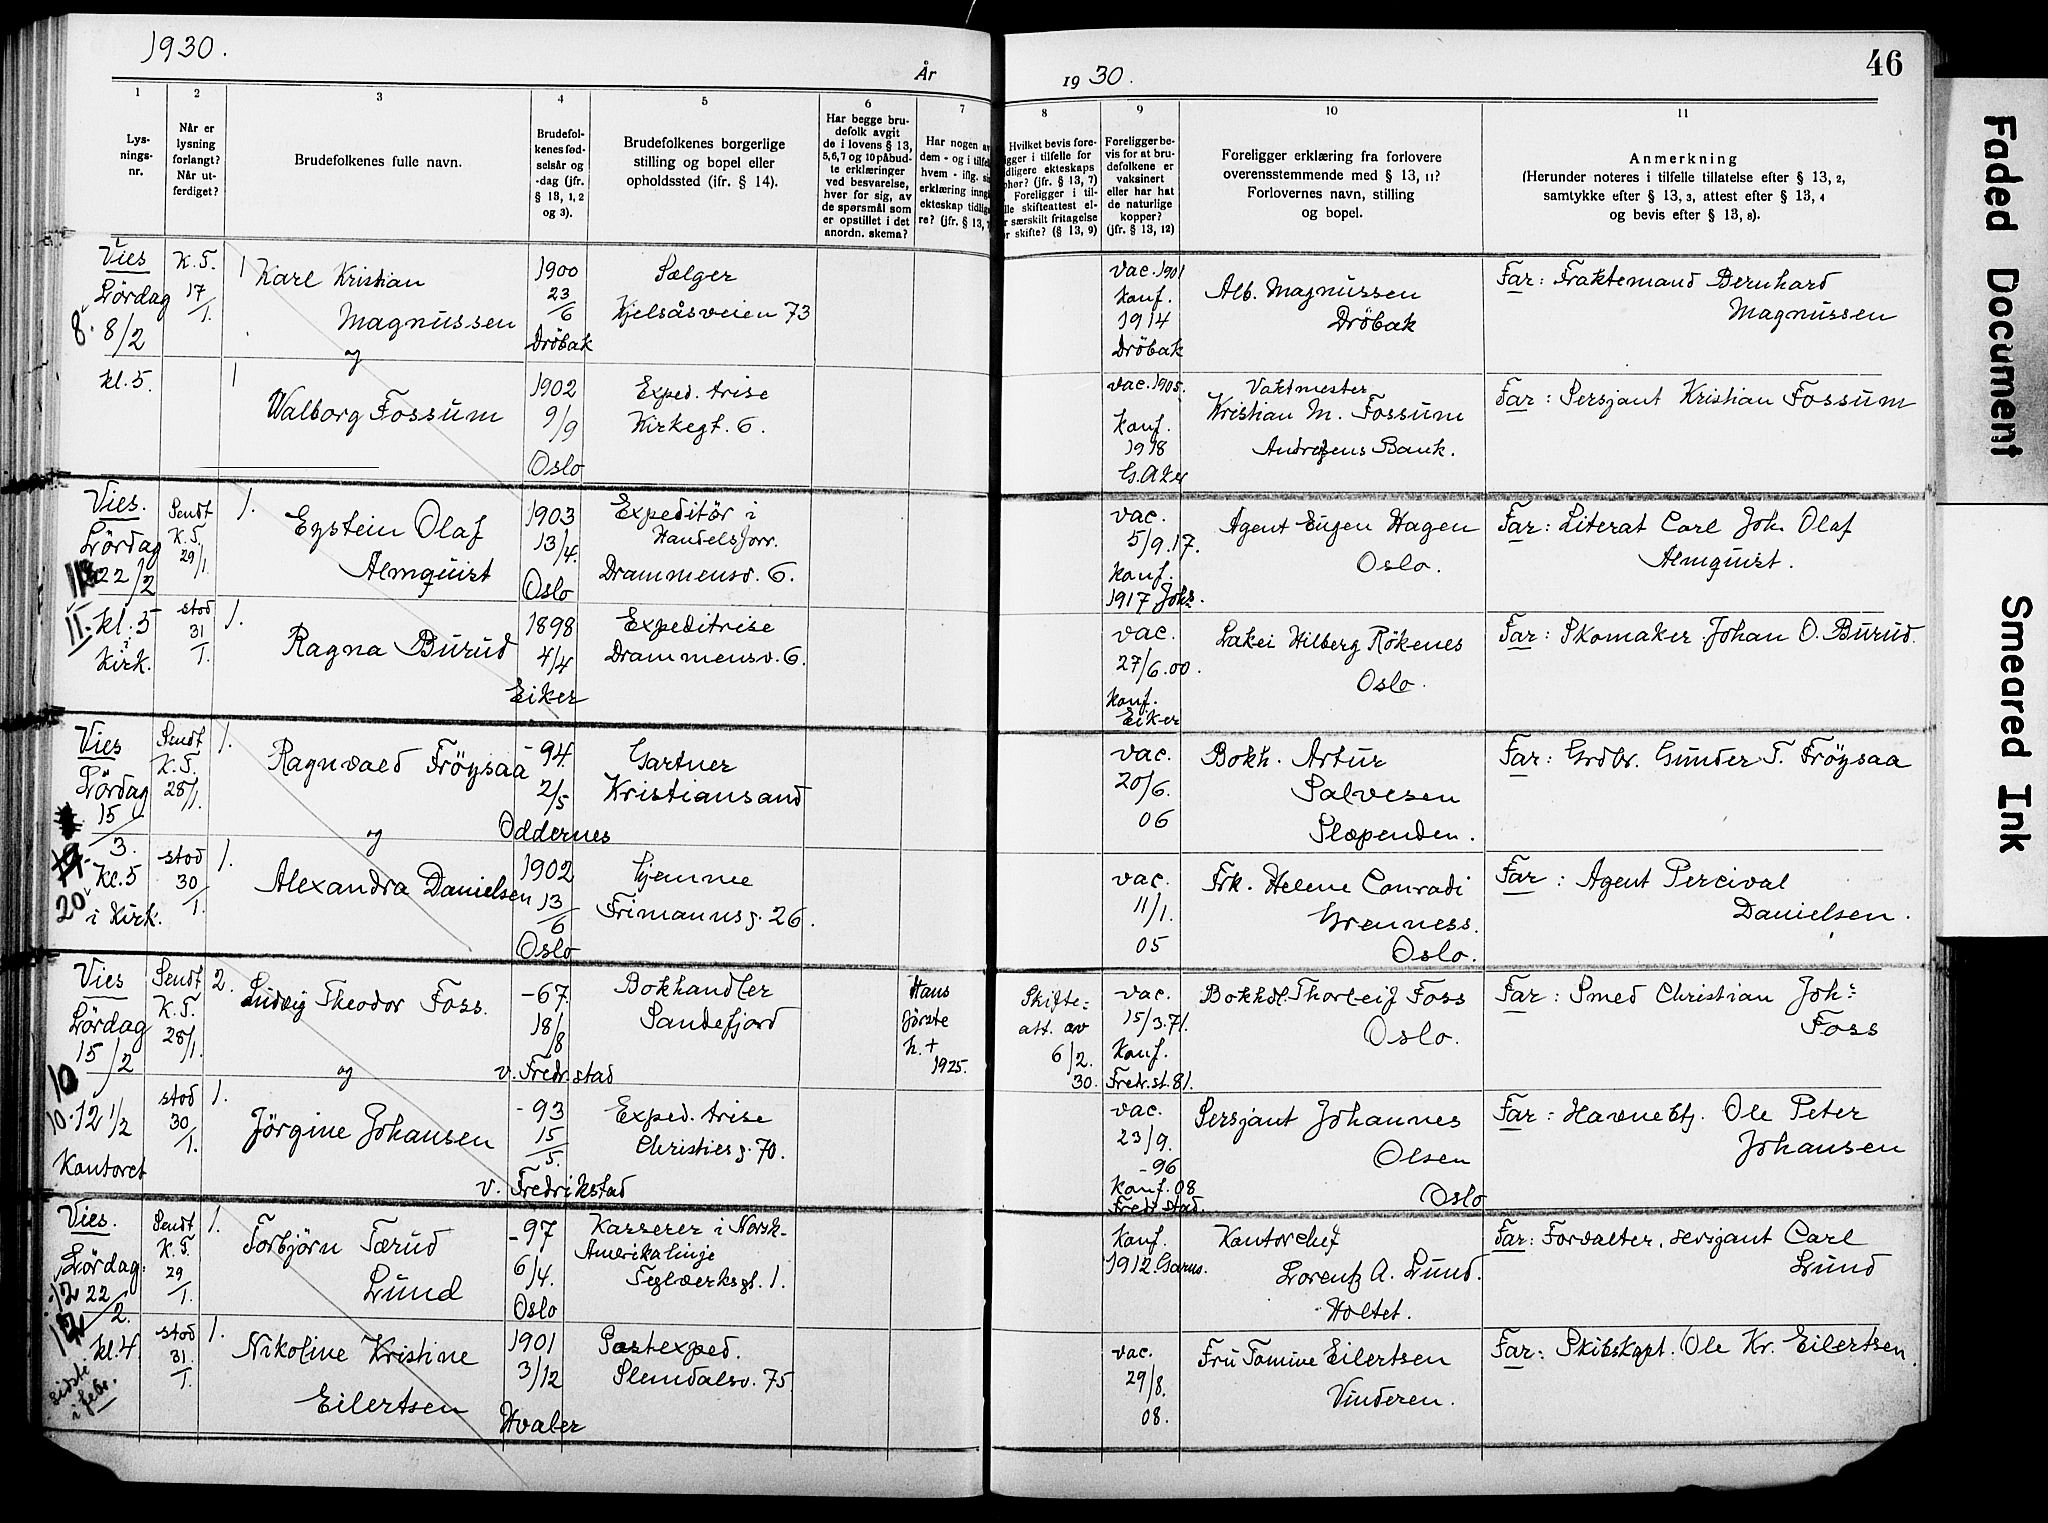 1930.
År
1930.
46
1
2
3
4
5
6
7
8
9
10
11
Lys-
nings-
nr.
Når er
lysning
forlangt?
Når ut-
ferdiget?
Brudefolkenes fulle navn.
Brudefol-
kenes fød-
selsår og
-dag (jfr.
§ 13, 1, 2
og 3).
Brudefolkenes borgerlige
stilling og bopel eller
opholdssted (jfr. § 14).
Har begge bru-
defolk avgit
de i lovens § 13,
5, 6, 7 og 10 påbud-
te erklæringer
ved besvarelse,
hver for sig, av
de spørsmål som
er opstillet i det
anordn. skema?
Har nogen av
dem - og i tilfelle
hvem - iflg. si
erklæring inng
ekteskap tidlig
re? (jfr. § 13, 7
Hvilket bevis fore-
ligger i tilfelle for
tidligere ekteskaps
ophør? (jfr. § 13, 7)
Foreligger i til-
felle skifteattest el-
er særskilt fritagelse
or skifte? (§ 13, 9)
Foreligger be-
vis for at bru-
defolkene er
vaksinert
eller har hat
de naturlige
kopper?
(jfr. § 13, 12)
Foreligger erklæring fra forlovere
overensstemmende med § 13, 11?
Forlovernes navn, stilling
og bopel.
Anmerkning
(Herunder noteres i tilfelle tillatelse efter § 13, 2,
samtykke efter § 13, 3, attest efter § 13, 4
og bevis efter § 13, 8).
Vies
Lördag
8. 8/2
kl. 5.
K.T.
17/1.
1 Karl Kristian
Magnussen
og
1900
23/6
Dröbak
Sælger
Kjelsåsveien 73
vac. 1901
Konf.
1914
Dröbak
Alb. Magnussen
Dröbak
Far: Fraktemand Bernhard
Magnussen
1
Walborg Fossum
1902
9/9
Oslo
Exped.trise
Kirkegt. 6.
vac. 1905.
Konf.
1918
G. Aker
Vaktmester
Kristian M. Fossum
Andresens Bank.
Far: Sersjant Kristian Fossum
Vies.
Lördag
22/2
11. kl. 5
i
Kirk.
Sendt
K.T.
29/1.
1. Eystein Olaf
Almquist
1903
13/4.
Oslo
Expeditör i
Handelsforr.
Drammensv. 6.
vac.
5/9.17.
Konf.
1917 Johs.
Agent Eugen Hagen
Oslo.
Far: Literat Carl Joh. Olaf
Almquist.
stod
31/1.
1. Ragna Burud
1898
4/4
Eiker
Expeditrise
Drammensv. 6.
vac.
27/6.00.
Konf.
Eiker
Lakei Hilberg Rökenes
Oslo.
Far: Skomaker Johan O. Burud.
Vies
Lördag
15/3.
Kl. 5
20 i Kirk.
Sendt
K.T.
28/1.
1. Ragnvald Fröysaa
og
-94.
2/5
Oddernes
Gartner
Kristiansand
vac.
20/6.
06
Bokh. Artur
Salvesen
Slæpenden.
Far: Grdbr. Gunder T. Fröysaa
stod
30/1.
1. Alexandra Danielsen
1902
13/6
Oslo
hjemme
Frimannsg. 26.
vac.
11/1.
05
Frk. Helene Conradi
Grenness.
Oslo.
Far: Agent Percival
Danielsen.
Vies
Lördag
15/2
10
10. 12 1/2
Kontoret
Sendt
K.T.
28/1.
2. Ludvig Theodor Foss.
og
-67.
18/8
v. Fredr.stad
Bokhandler
Sandefjord
Hans
förste
h. +
1925.
Skifte-
att. av
6/2.
30.
vac.
15/3.71.
Konf.
Fredr.st. 81.
Bokhdl. Thorleif Foss
Oslo.
Far: Smed Christian Joh:
Foss
stod
30/1.
1. Jörgine Johansen
-93
15/5.
v. Fredrikstad
Exped.trise
Christiesg. 70.
vac.
23/9.
-96
Konf. 08
Fredr.stad.
Sersjant Johannes
Olsen
Oslo
Far: Havnebtj. Ole Peter
Johansen
Vies.
Lördag.
12 22/2.
12 kl. 4.
sidste
i febr.
Sendt
K.T.
29/1.
1. Torbjörn Tærud
Lund
-97
6/4.
Oslo
Kasserer i Norsk-
Amerikalinje
Teglverksgt. 1.
Konf.
1912. Garns.
Kontorchef
Lorentz A. Lund.
Holtet.
Far: Forvalter, sersjant Carl
Lund
stod
31/1.
1. Nikoline Kristine
Eilertsen
1901
3/12
Hvaler
Postexped.
Slemdalsv. 75
vac.
29/8.
08.
Fru Tomine Eilertsen
Vinderen.
Far: Skibskapt. Ole Kr. Eilertsen.
Faded Document
Smeared Ink